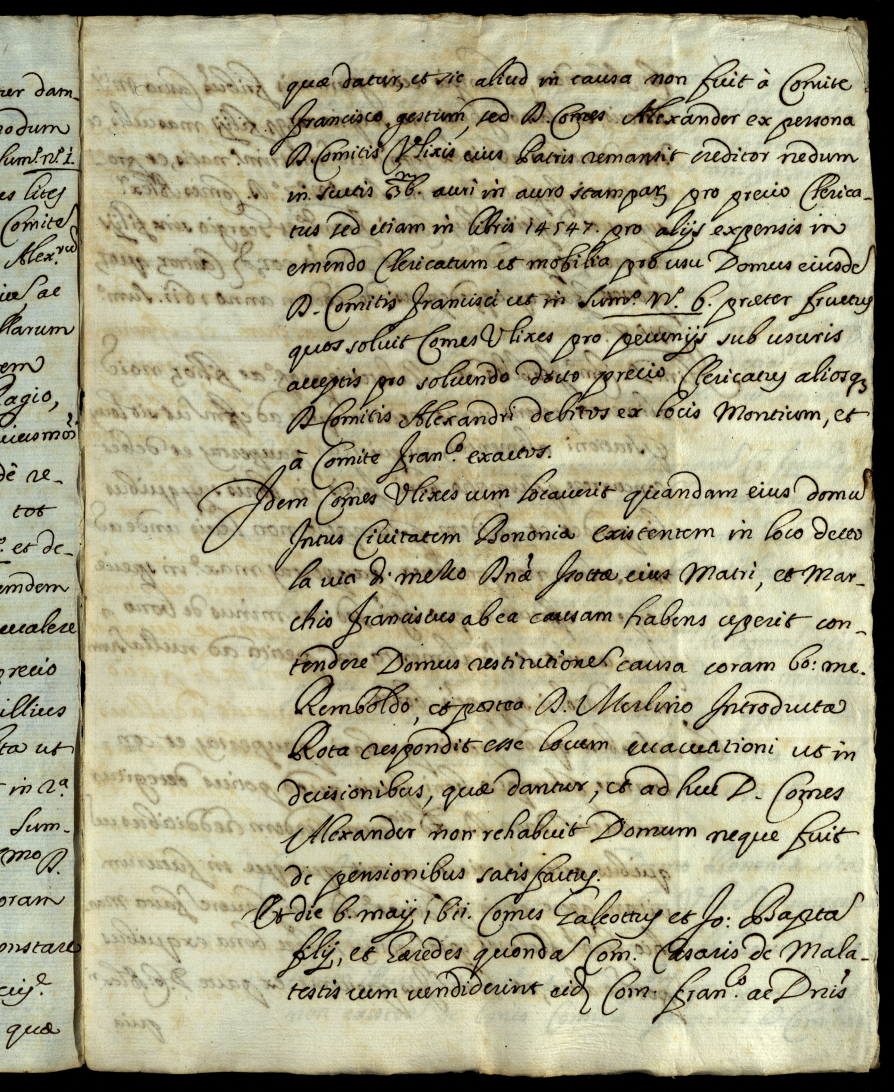 rer dam-
nodum
Sum.° n.° 1.
es lites
Comites
Alex.
ac
llarum
em
lagio,
dē re-
tot
et de-
emdem
uualere
precio
illius
ta ut
in 2ᵃ
Sum-
mo D.
oram
onstare
quæ
quæ datur, et sic aliud in causa non fuit à Comite
Francisco gestum, sed D. Comes Alexander ex persona
D. Comitis Vlixis eius Patris remansit creditor nedum
in scutis auri in auro stampar pro precio Clerica-
tus sed etiam in libris 14547. pro alijs expensis in
emendo Clericatum et mobilia pro usu Domus eiusdē
D. Comitis Francisci ut in Sum.° N.° 6. præter fructus
quos soluit Comes Vlixes pro pecunijs sub usuris
acceptis pro soluendo dicto precio Clericatus aliosq;
D. Comitis Alexandri debitos ex locis Montium, et
à Comite Fran.° exactos.
Idem Comes Vlixes cum locauerit quandam eius domū
Intus Ciuitatem Bononiæ existentem in loco detto
la via di mezzo Dnæ Isottæ eius Matri, et Mar-
chio Franciscus ab ea causam habens ceperit con-
tendere Domus restitutionē causa coram bo: me.
Remboldo, et postea D. Merlino Introducta
Rota respondit esse locum euacuationi ut in
decisionibus, quæ dantur, et ad huc D. Comes
Alexander non rehabuit Domum neque fuit
de pensionibus satisfactus.
Et die 6. maij 1611. Comes Galeottus et Jo: Bapta
filij, et hæredes quondā Com. Cæsaris de Mala-
testis cum vendiderint eid Com. Fran.° ac Dnis